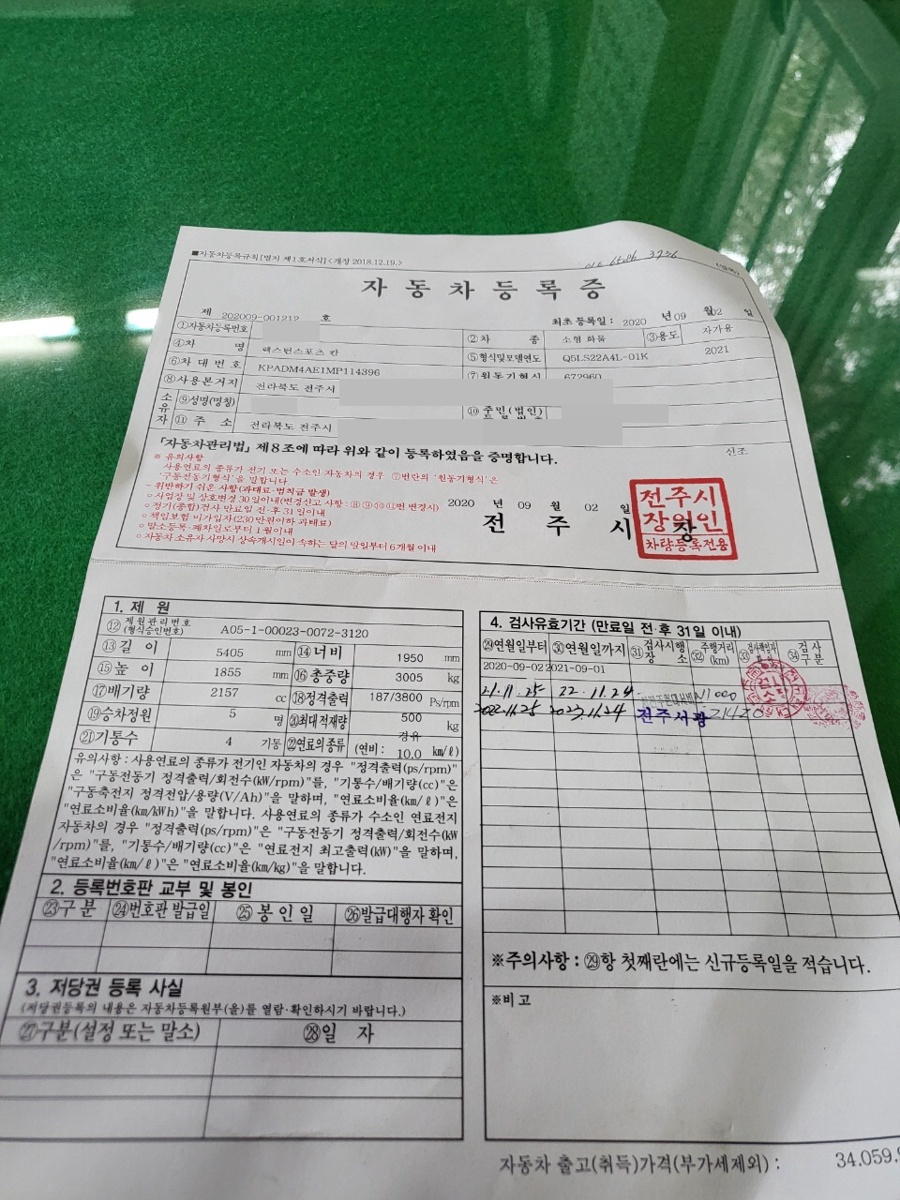 ■자동차등록규칙[별지 제1호서식]<개정 2018.12.19.>
자 동 차 등 록 증
제 202009-001212 호
최초 등록일 : 2020 년 09 월 02 일
①자동차등록번호 ②차 종 소형 화물 ③용도 자가용
④차 명 렉스턴스포츠 칸 ⑤형식및모델연도 Q5LS22A4L-01K 2021
⑥차 대 번 호 KPADM4AE1MP114396 ⑦원동기형식 672960
⑧사용본거지 전라북도 전주시
소유자 ⑨성명(명칭) ⑩주민(법인)
⑪주 소 전라북도 전주시
「자동차관리법」 제8조에 따라 위와 같이 등록하였음을 증명합니다.
신조
※ 유의사항
사용연료의 종류가 전기 또는 수소인 자동차의 경우 ⑦번란의 '원동기형식'은
'구동전동기형식'을 말합니다
- 위반하기 쉬운 사항(과태료·범칙금 발생)
○ 사업장 및 상호변경 30일이내(변경신고 사항 : ⑧⑨⑩⑪번 변경시)
○ 정기(종합)검사 만료일 전·후 31일이내
○ 책임보험 미가입자(230만원이하 과태료)
○ 말소등록·폐차일로부터 1월이내
○ 자동차 소유자 사망시 상속개시일이 속하는 달의 말일부터 6개월 이내
2020 년 09 월 02 일
전 주 시 장
전주시
장원인
차량등록전용
1. 제 원
⑫제원관리번호 (형식승인번호) A05-1-00023-0072-3120
⑬길 이 5405 mm ⑭너비 1950 mm
⑮높 이 1855 mm ⑯총중량 3005 kg
⑰배기량 2157 cc ⑱정격출력 187/3800 Ps/rpm
⑲승차정원 5 명 ⑳최대적재량 500 kg
㉑기통수 4 기통 ㉒연료의종류 경유 (연비 : 10.0 km/ℓ)
유의사항 : 사용연료의 종류가 전기인 자동차의 경우 "정격출력(ps/rpm)"
은 "구동전동기 정격출력/회전수(kW/rpm)"를, "기통수/배기량(cc)"은
"구동축전지 정격전압/용량(V/Ah)"을 말하며, "연료소비율(km/ℓ)"은
"연료소비율(km/kWh)"을 말합니다. 사용연료의 종류가 수소인 연료전지
자동차의 경우 "정격출력(ps/rpm)"은 "구동전동기 정격출력/회전수(kW
/rpm)"를, "기통수/배기량(cc)"은 "연료전지 최고출력(kW)"을 말하며,
"연료소비율(km/ℓ)"은 "연료소비율(km/kg)"을 말합니다.
2. 등록번호판 교부 및 봉인
㉓구 분 ㉔번호판 발급일 ㉕봉 인 일 ㉖발급대행자 확인
3. 저당권 등록 사실
(저당권등록의 내용은 자동차등록원부(을)를 열람·확인하시기 바랍니다.)
㉗구분(설정 또는 말소) ㉘일 자
4. 검사유효기간 (만료일 전·후 31일 이내)
㉙연월일부터 ㉚연월일까지 ㉛검사시행장소 ㉜주행거리(km) ㉞검사구분
2020-09-02 2021-09-01
21.11.25 22.11.24
2022.11.25 2023.11.24 전주서광
※주의사항 : ㉙항 첫째란에는 신규등록일을 적습니다.
※비고
자동차 출고(취득)가격(부가세제외) : 34.059.